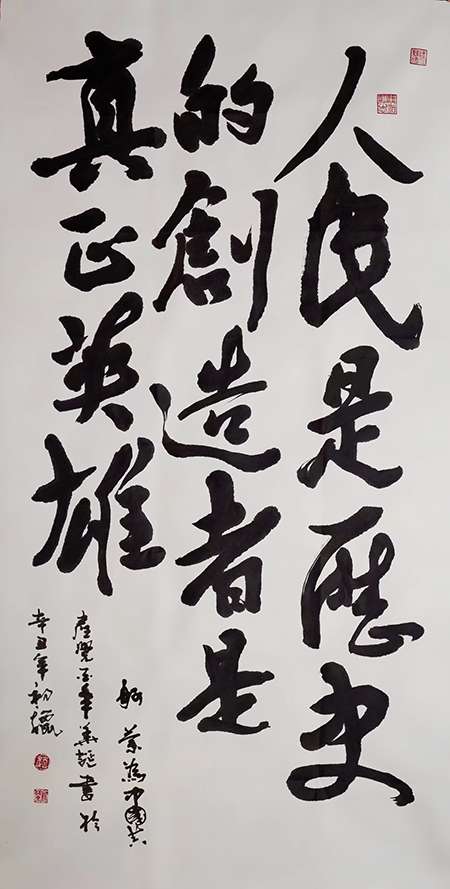 人民是歷史
的創造者是
真正英雄
為中國共
產黨百年華誕書於
辛丑年初